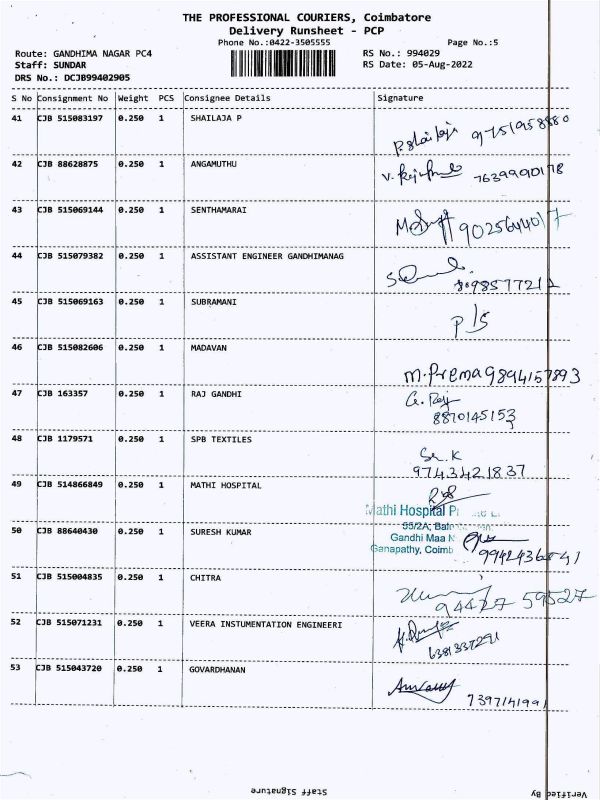 THE PROFESSIONAL COURIERS, Coimbatore
Delivery Runsheet - PCP
Phone No.:0422-3505555 Page No.:5
Route: GANDHIMA NAGAR PC4 RS No.: 994029
Staff: SUNDAR RS Date: 05-Aug-2022
DRS No.: DCJB99402905
S No Consignment No Weight PCS Consignee Details Signature
41 CJB 515083197 0.250 1 SHAILAJA P
P. Shailaja 9751958880
42 CJB 88628875 0.250 1 ANGAMUTHU
7639990178
43 CJB 515069144 0.250 1 SENTHAMARAI
9025644017
44 CJB 515079382 0.250 1 ASSISTANT ENGINEER GANDHIMANAG
45 CJB 515069163 0.250 1 SUBRAMANI
P/S
46 CJB 515082606 0.250 1 MADAVAN
M.Prema 9894157893
47 CJB 163357 0.250 1 RAJ GANDHI
G. Raj
8870145153
48 CJB 1179571 0.250 1 SPB TEXTILES
9743421837
49 CJB 514866849 0.250 1 MATHI HOSPITAL
Mathi Hospital
95/2A,
50 CJB 88640430 0.250 1 SURESH KUMAR
Gandhi Maa
Ganapathy, Coimb
51 CJB 515004835 0.250 1 CHITRA
94427 59527
52 CJB 515071231 0.250 1 VEERA INSTUMENTATION ENGINEERI
6381337291
53 CJB 515043720 0.250 1 GOVARDHANAN
7397141991
Staff Signature Verified By